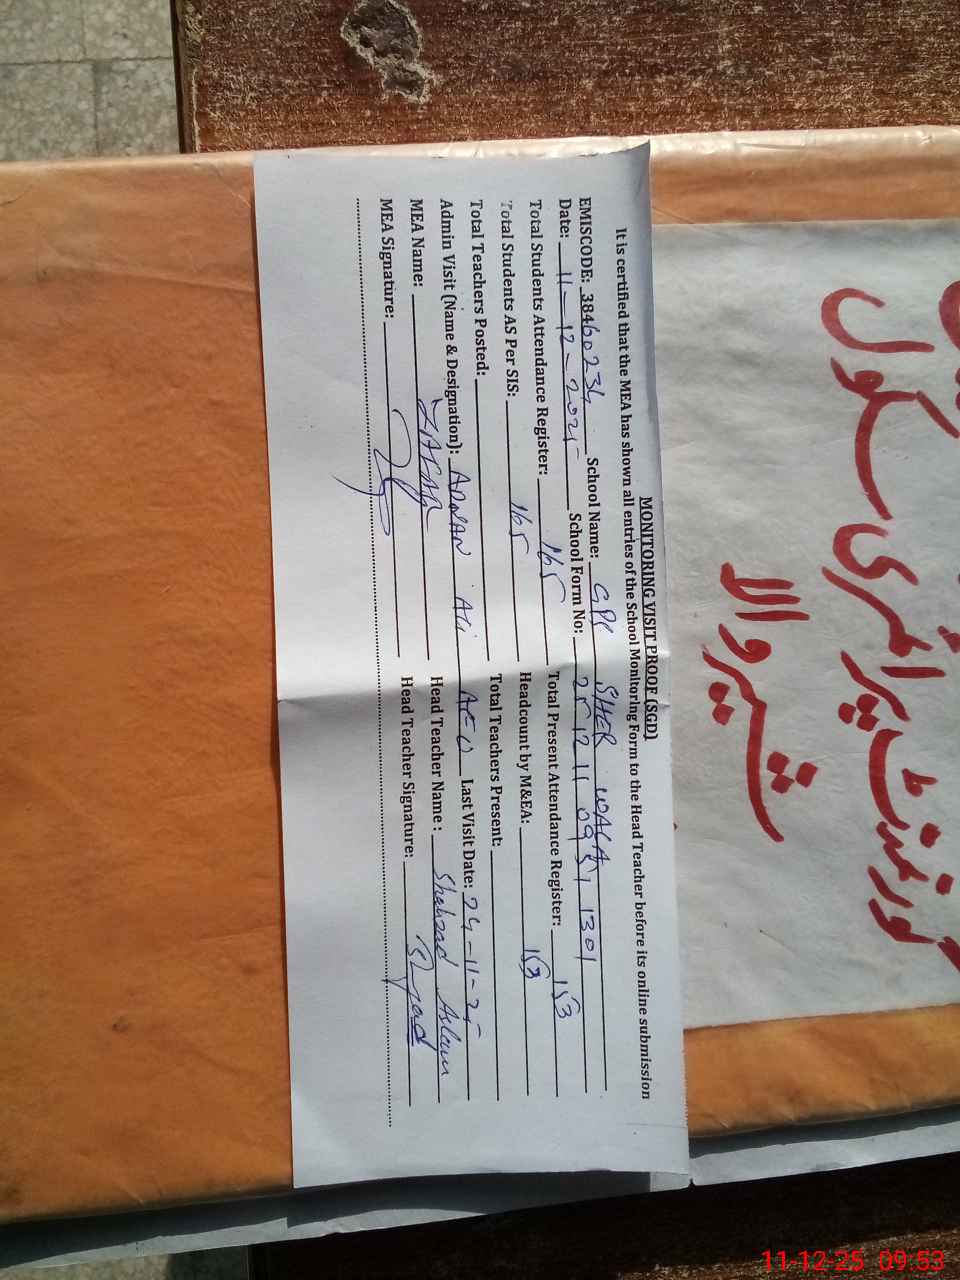 MONITORING VISIT PROOF (SGD)
It is certified that the MEA has shown all entries of the School Monitoring Form to the Head Teacher before its online submission
EMISCODE: 38460234 School Name: GPS SHER WALA
Date: 11-12-2025 School Form No: 25 12 11 09 51 1301
Total Students Attendance Register: 165 Total Present Attendance Register: 153
Total Students AS Per SIS: 165 Headcount by M&EA: 153
Total Teachers Posted: Total Teachers Present:
Admin Visit (Name & Designation): ADNAN Ali AEO Last Visit Date: 24-11-25
MEA Name: ZAFAR Head Teacher Name : Shahzad Aslam
MEA Signature: Head Teacher Signature:
گورنمنٹ پرائمری سکول
شیروالا
11-12-25 09:53